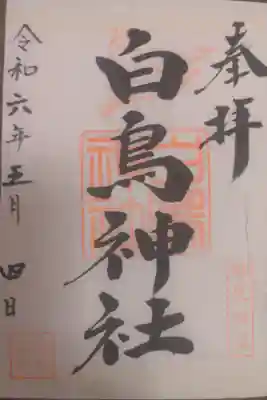 奉拝
白鳥神社
令和六年五月四日